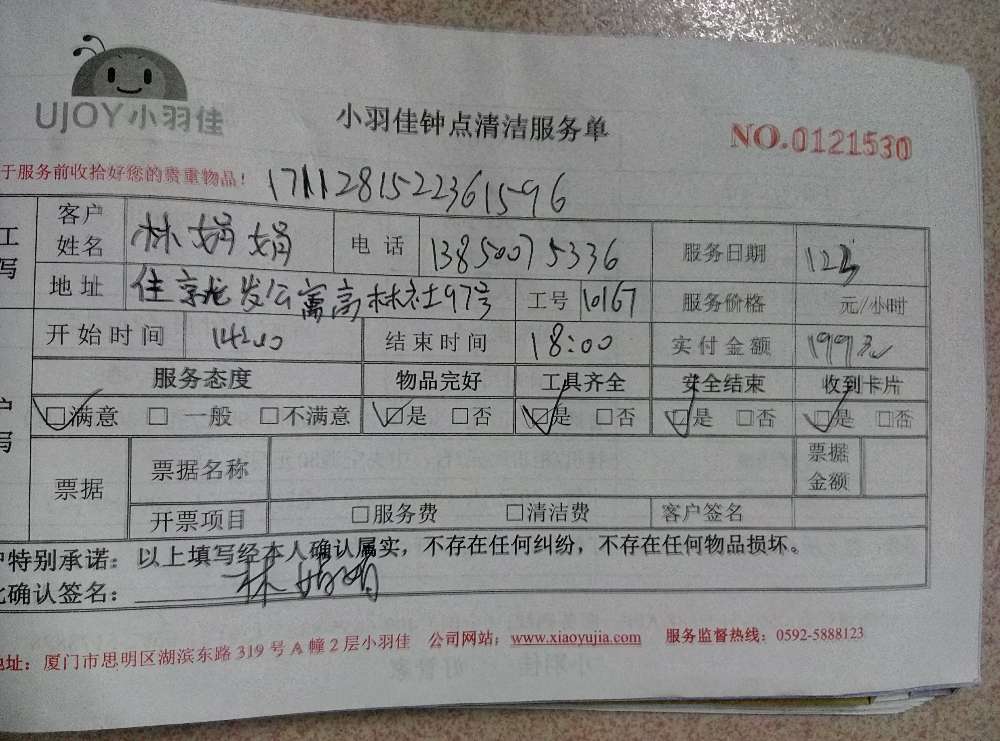 UJOY小羽佳
小羽佳钟点清洁服务单
NO.0121530
于服务前收拾好您的贵重物品!
171128152236 1596
工 客户姓名 林娟娟 电话 13850075336 服务日期
写 地址 龙发公寓高林社97号 工号 10167 服务价格 元/小时
开始时间 14:00 结束时间 18:00 实付金额 199元
服务态度 物品完好 工具齐全 安全结束 收到卡片
户 □满意 □一般 □不满意 □是 □否 □是 □否 □是 □否 □是 □否
写 票据 票据名称 票据金额
开票项目 □服务费 □清洁费 客户签名
户特别承诺:以上填写经本人确认属实,不存在任何纠纷,不存在任何物品损坏。
确认签名: 林娟娟
地址:厦门市思明区湖滨东路 319 号 A 幢 2 层小羽佳 公司网站:www.xiaoyujia.com 服务监督热线:0592-5888123